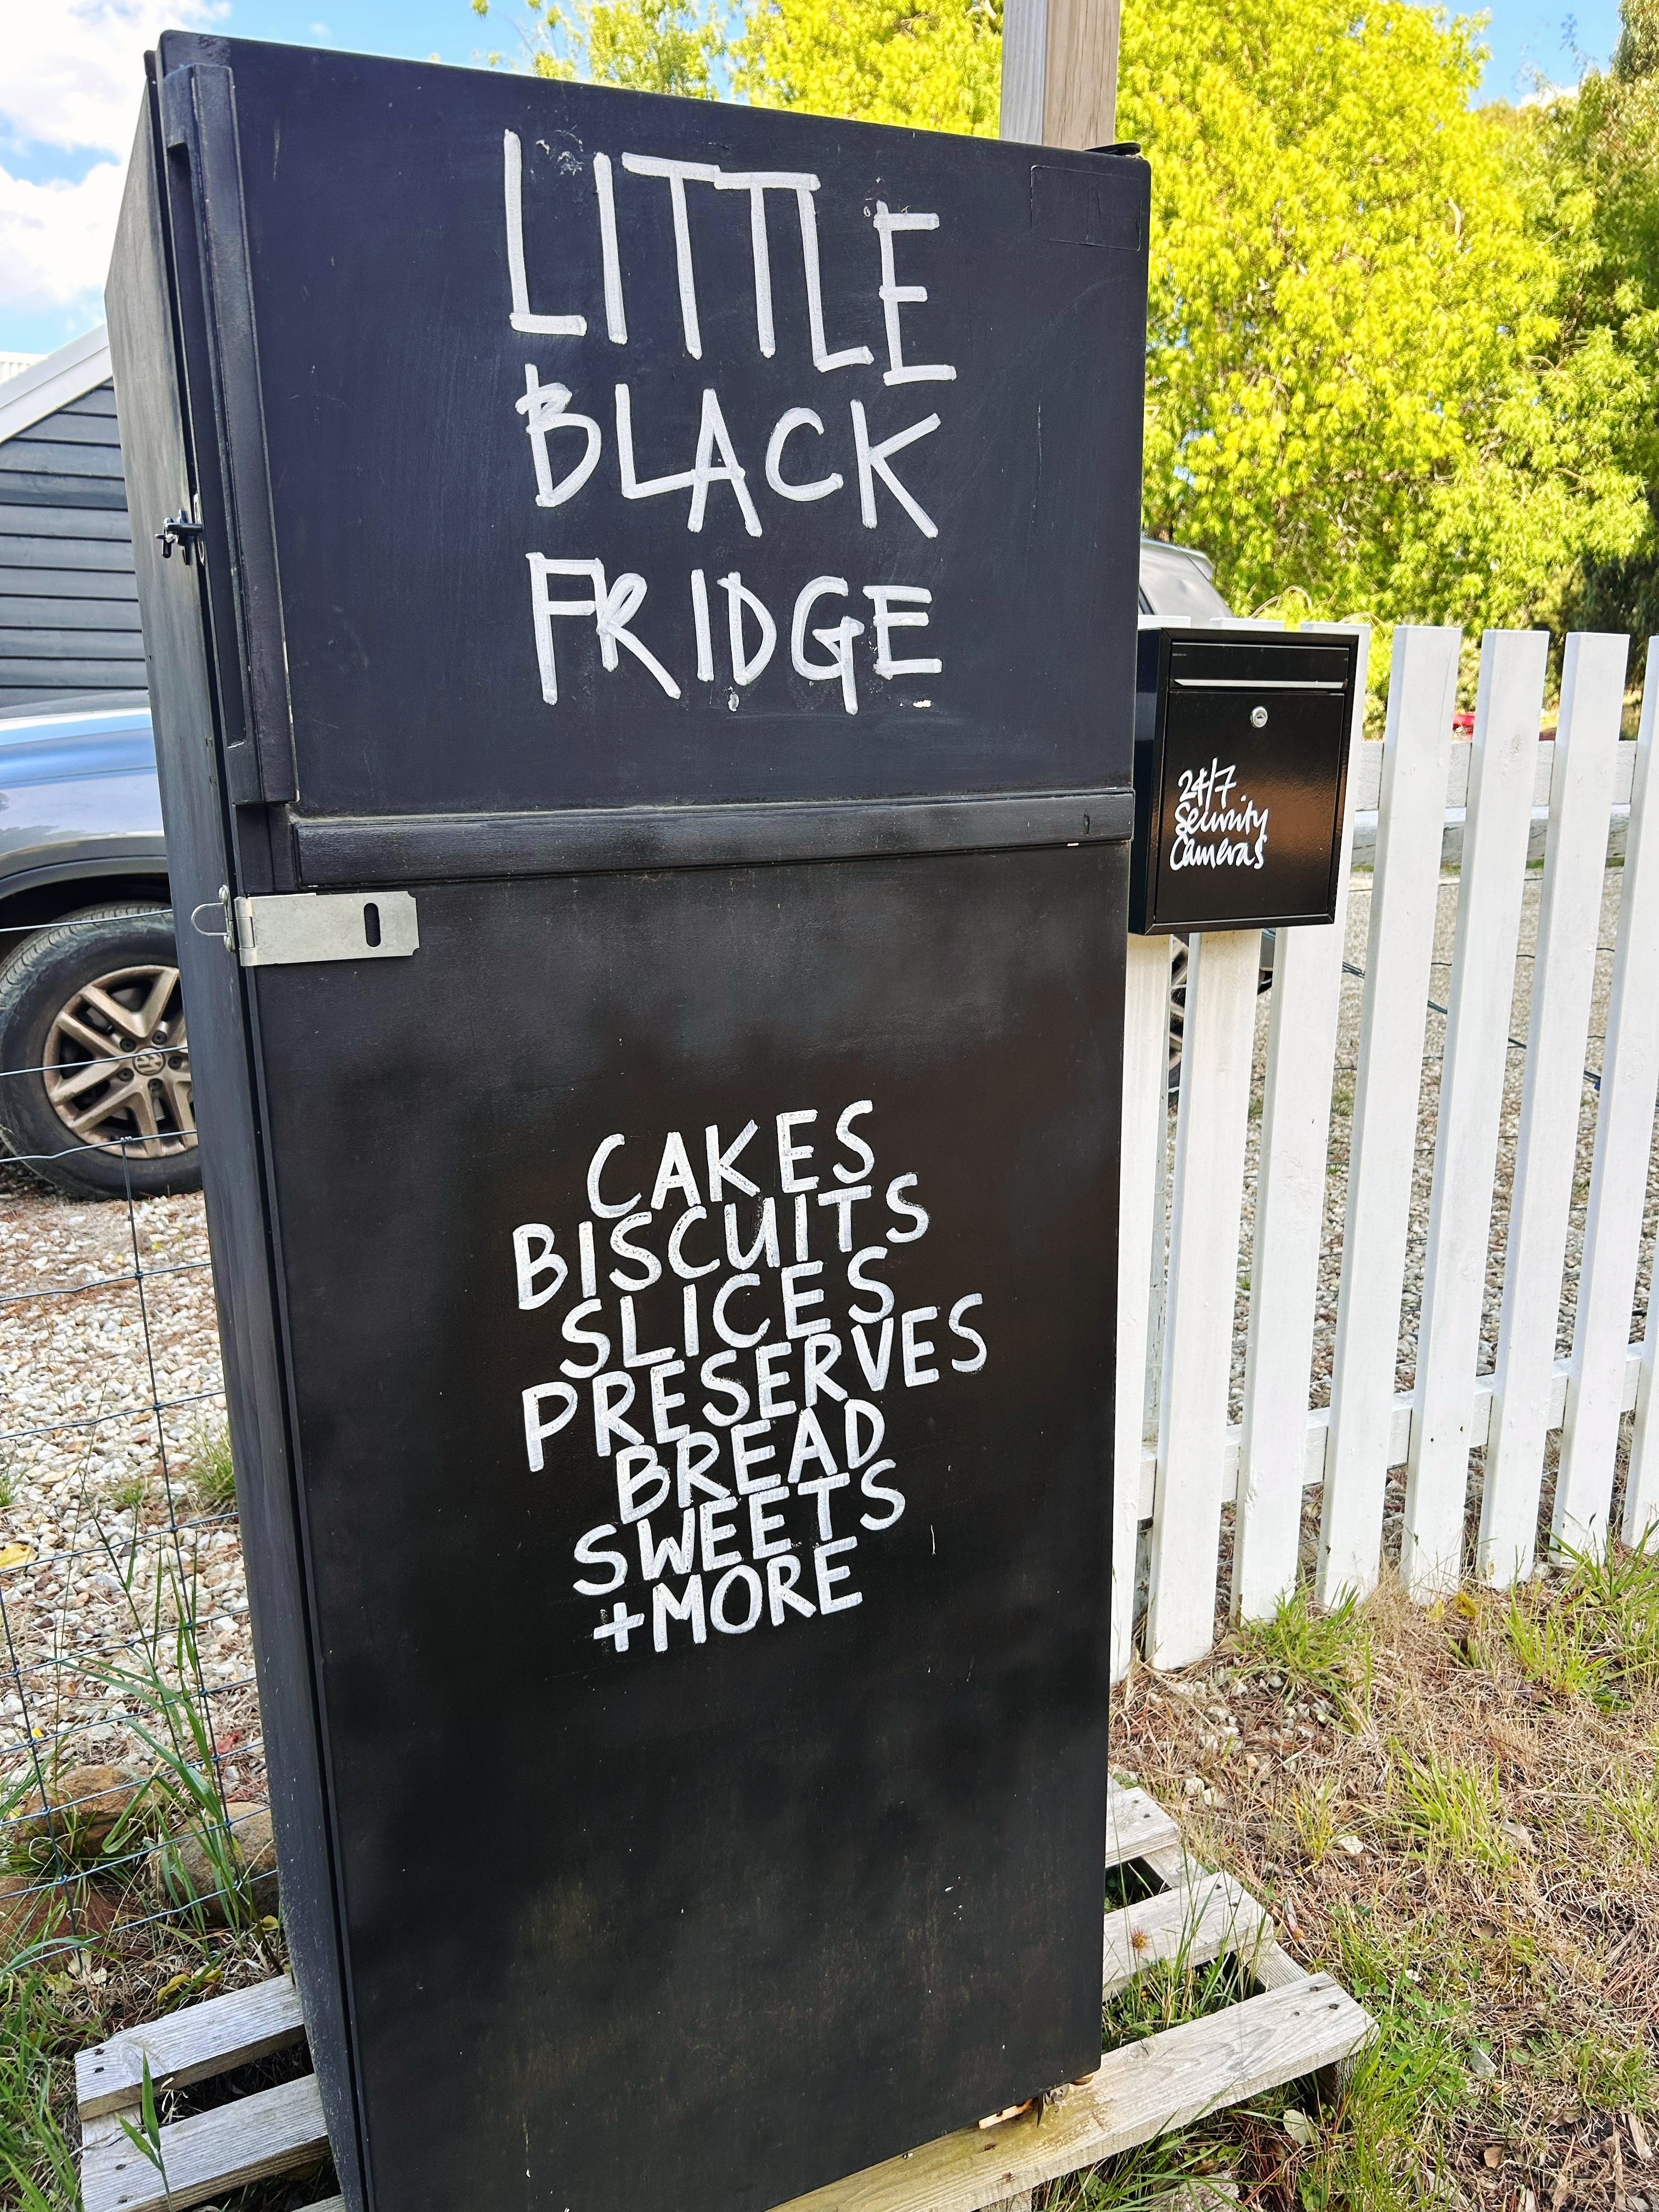 LITTLE
BLACK
FRIDGE
24/7
Security
Cameras
CAKES
BISCUITS
SLICES
PRESERVES
BREAD
SWEETS
+MORE